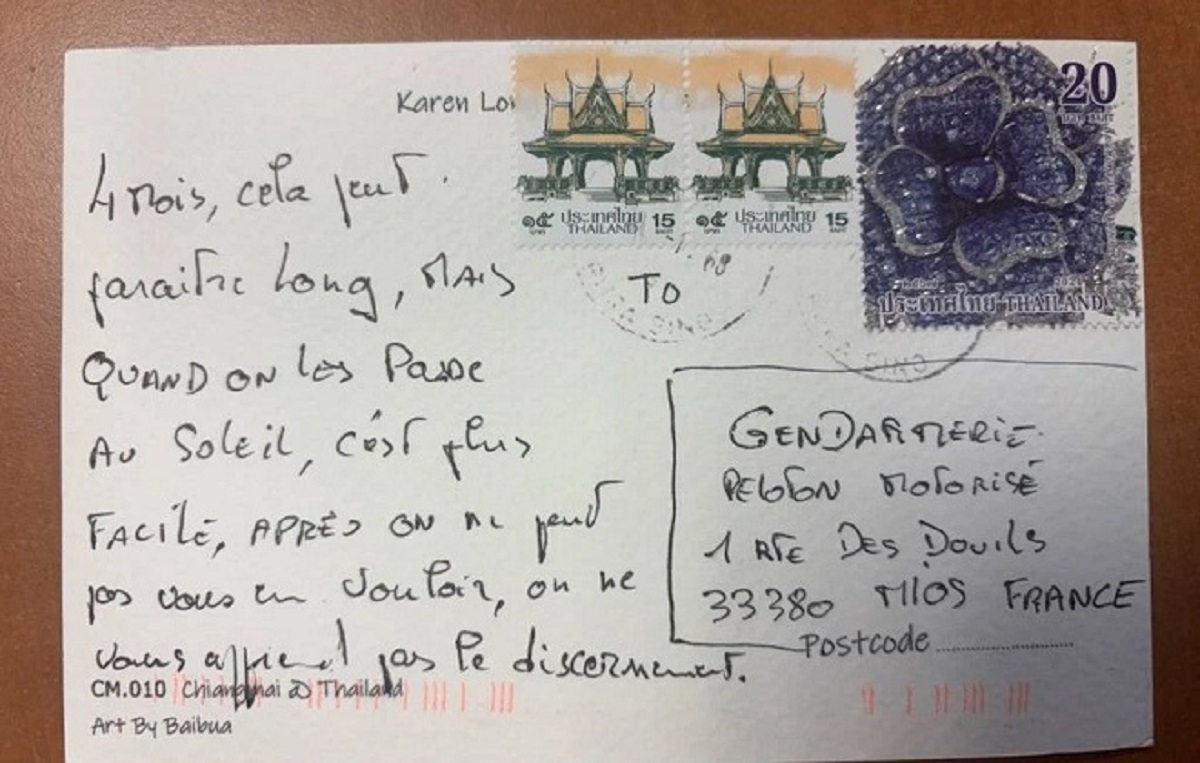 Karen
๑๕ ประเทศไทย 15
บาท THAILAND BAHT
๑๕ ประเทศไทย 15
บาท THAILAND BAHT
20
ประเทศไทย THAILAND
4 mois, cela peut
paraitre long, mais
QUAND ON les Passe
AU Soleil, c'est plus
FACILE, APRÈS ON ne peut
pas vous en vouloir, on ne
vous apprend pas le discernement.
TO
GENDARMERIE
PELOTON MOTORISÉ
1 RTE DES DOUILS
33380 MIOS FRANCE
Postcode
CM.010 Chiangmai Thailand
Art By Baibua